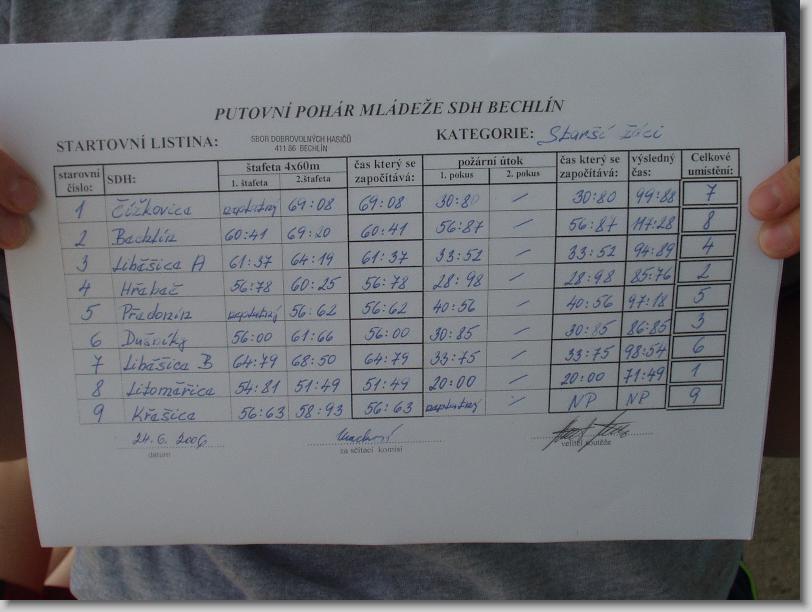 PUTOVNÍ POHÁR MLÁDEŽE SDH BECHLÍN
STARTOVNÍ LISTINA: SBOR DOBROVOLNÝCH HASIČŮ KATEGORIE: Starší žáci
411 86 BECHLÍN
starovní číslo: SDH: štafeta 4x60m 1. štafeta 2.štafeta čas který se započítává: požární útok 1. pokus 2. pokus čas který se započítává: výsledný čas: Celkové umístění:
1 Čížkovice neplatný 69:08 69:08 30:80 / 30:80 99:88 7
2 Bechlín 60:41 69:20 60:41 56:87 / 56:87 117:28 8
3 Libášice A 61:37 64:19 61:37 33:52 / 33:52 94:89 4
4 Hřabač 56:78 60:25 56:78 28:98 / 28:98 85:76 2
5 Předonín neplatný 56:62 56:62 40:56 / 40:56 97:18 5
6 Dušníky 56:00 61:66 56:00 30:85 / 30:85 86:85 3
7 Libášice B 64:79 68:50 64:79 33:75 / 33:75 98:54 6
8 Litoměřice 54:81 51:49 51:49 20:00 / 20:00 71:49 1
9 Křešice 56:63 58:93 56:63 neplatný / NP NP 9
24. 6. 2006
datum za sčítací komisi velitel soutěže